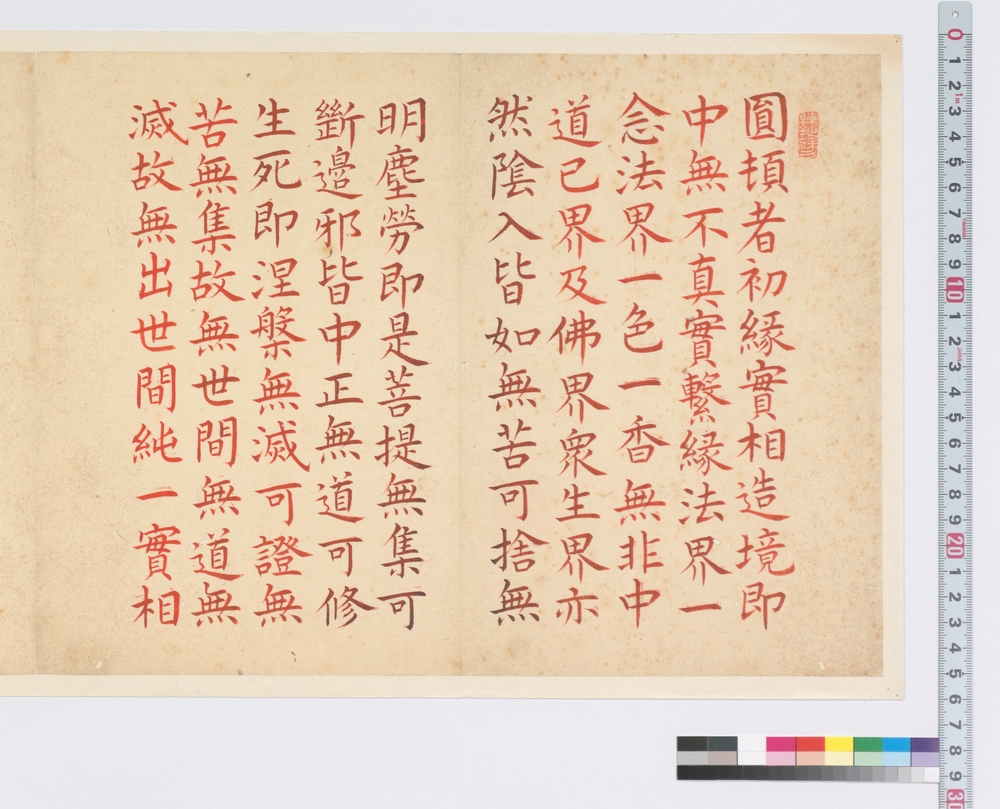 圓頓者初緣實相造境即
中無不真實繫緣法界一
念法界一色一香無非中
道已界及佛界衆生界亦
然陰入皆如無苦可捨無
明塵勞即是菩提無集可
斷邊邪皆中正無道可修
生死即涅槃無滅可證無
苦無集故無世間無道無
滅故無出世間純一實相
0 1 2 3 4 5 6 7 8 9 10 1 2 3 4 5 6 7 8 9 20 1 2 3 4 5 6 7 8 9 30